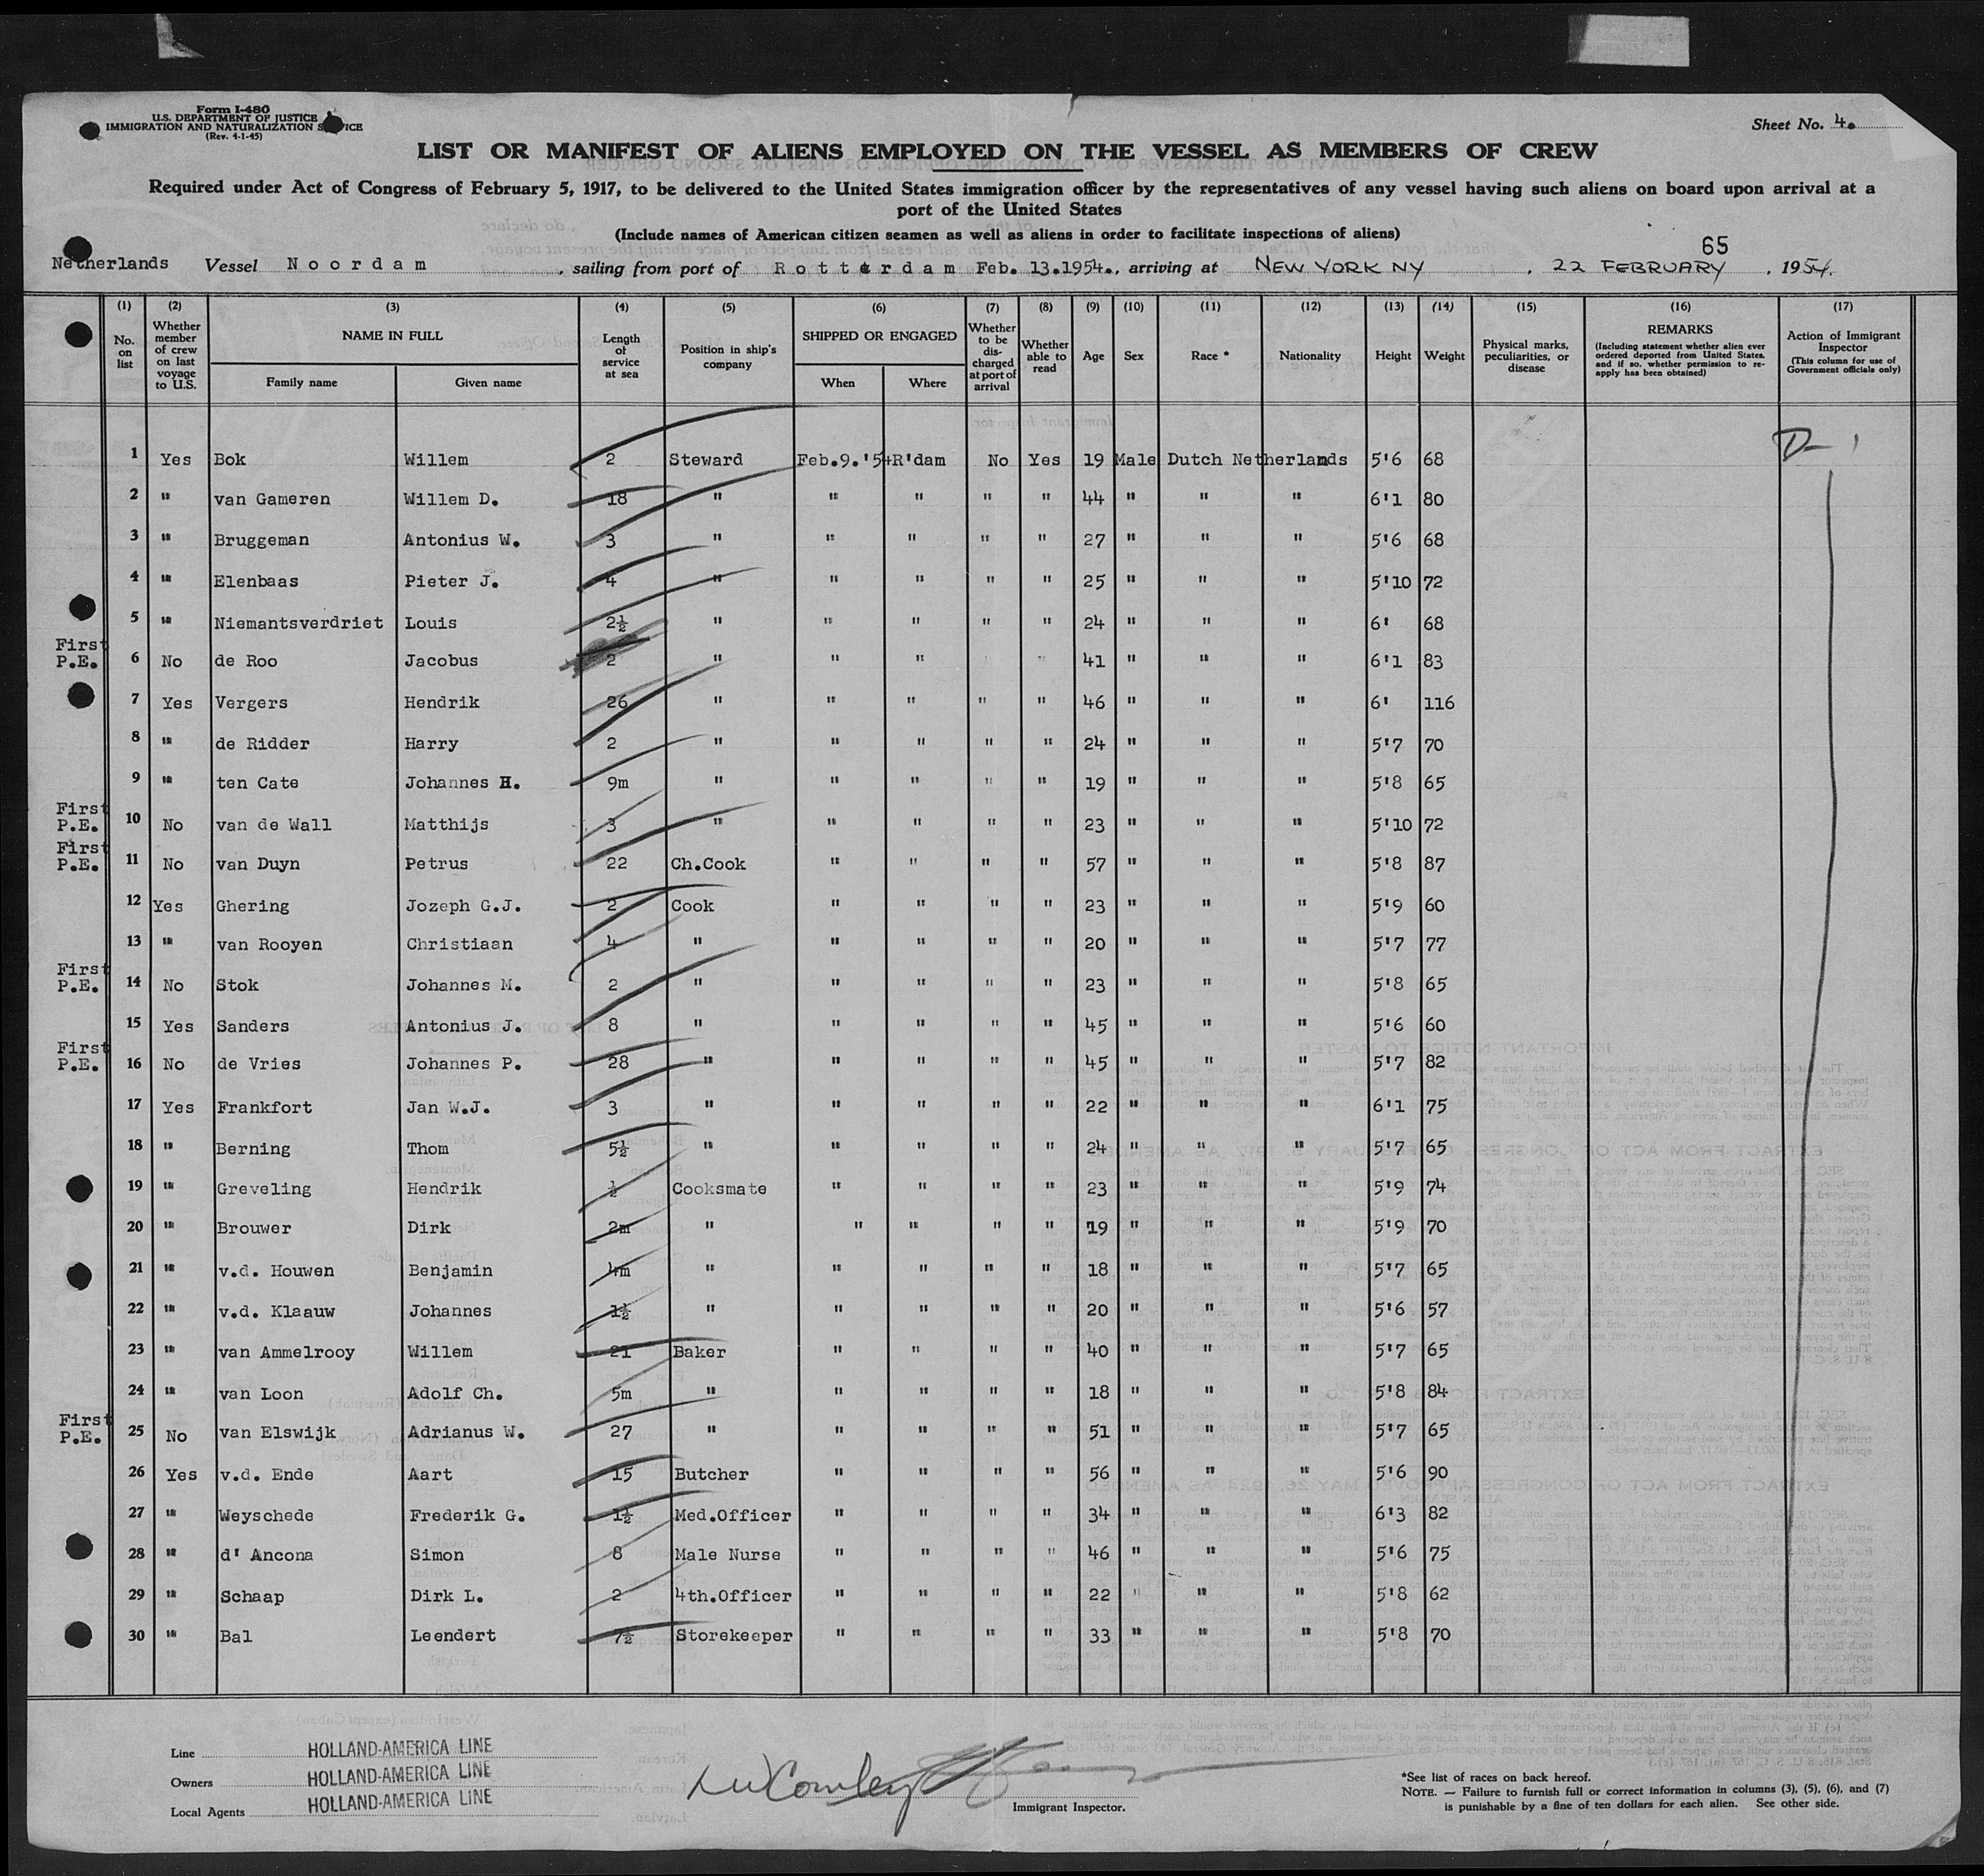 Form I-480
U.S. DEPARTMENT OF JUSTICE
IMMIGRATION AND NATURALIZATION SERVICE
(Rev. 4-1-45)
Sheet No. 4.
LIST OR MANIFEST OF ALIENS EMPLOYED ON THE VESSEL AS MEMBERS OF CREW
Required under Act of Congress of February 5, 1917, to be delivered to the United States immigration officer by the representatives of any vessel having such aliens on board upon arrival at a
port of the United States
(Include names of American citizen seamen as well as aliens in order to facilitate inspections of aliens)
65
Netherlands Vessel Noordam, sailing from port of Rotterdam Feb. 13.1954., arriving at NEW YORK NY, 22 FEBRUARY, 1954.
(1) (2) (3) (4) (5) (6) (7) (8) (9) (10) (11) (12) (13) (14) (15) (16) (17)
No. on list
Whether member of crew on last voyage to U.S.
NAME IN FULL
Family name Given name
Length of service at sea
Position in ship's company
SHIPPED OR ENGAGED
When Where
Whether to be discharged at port of arrival
Whether able to read
Age Sex Race * Nationality Height Weight
Physical marks, peculiarities, or disease
REMARKS
(Including statement whether alien ever ordered deported from United States, and if so, whether permission to re-apply has been obtained)
Action of Immigrant Inspector
(This column for use of Government officials only)
1 Yes Bok Willem 2 Steward Feb.9.'54 R'dam No Yes 19 Male Dutch Netherlands 5'6 68
2 " van Gameren Willem D. 18 " " " " " 44 " " " 6'1 80
3 " Bruggeman Antonius W. 3 " " " " " 27 " " " 5'6 68
4 " Elenbaas Pieter J. 4 " " " " " 25 " " " 5'10 72
5 " Niemantsverdriet Louis 2½ " " " " " 24 " " " 6' 68
First P.E. 6 No de Roo Jacobus 2 " " " " " 41 " " " 6'1 83
7 Yes Vergers Hendrik 26 " " " " " 46 " " " 6' 116
8 " de Ridder Harry 2 " " " " " 24 " " " 5'7 70
9 " ten Cate Johannes H. 9m " " " " " 19 " " " 5'8 65
First P.E. 10 No van de Wall Matthijs 3 " " " " " 23 " " " 5'10 72
First P.E. 11 No van Duyn Petrus 22 Ch.Cook " " " " 57 " " " 5'8 87
12 Yes Ghering Jozeph G.J. 2 Cook " " " " 23 " " " 5'9 60
13 " van Rooyen Christiaan 4 " " " " " 20 " " " 5'7 77
First P.E. 14 No Stok Johannes M. 2 " " " " " 23 " " " 5'8 65
15 Yes Sanders Antonius J. 8 " " " " " 45 " " " 5'6 60
First P.E. 16 No de Vries Johannes P. 28 " " " " " 45 " " " 5'7 82
17 Yes Frankfort Jan W.J. 3 " " " " " 22 " " " 6'1 75
18 " Berning Thom 5½ " " " " " 24 " " " 5'7 65
19 " Greveling Hendrik ½ Cooksmate " " " " 23 " " " 5'9 74
20 " Brouwer Dirk 2m " " " " " 19 " " " 5'9 70
21 " v.d. Houwen Benjamin 4m " " " " " 18 " " " 5'7 65
22 " v.d. Klaauw Johannes 1½ " " " " " 20 " " " 5'6 57
23 " van Ammelrooy Willem 21 Baker " " " " 40 " " " 5'7 65
24 " van Loon Adolf Ch. 5m " " " " " 18 " " " 5'8 84
First P.E. 25 No van Elswijk Adrianus W. 27 " " " " " 51 " " " 5'7 65
26 Yes v.d. Ende Aart 15 Butcher " " " " 56 " " " 5'6 90
27 " Weyschede Frederik G. 1½ Med.Officer " " " " 34 " " " 6'3 82
28 " d' Ancona Simon 8 Male Nurse " " " " 46 " " " 5'6 75
29 " Schaap Dirk L. 2 4th.Officer " " " " 22 " " " 5'8 62
30 " Bal Leendert 7½ Storekeeper " " " " 33 " " " 5'8 70
Line HOLLAND-AMERICA LINE
Owners HOLLAND-AMERICA LINE
Local Agents HOLLAND-AMERICA LINE
Immigrant Inspector.
*See list of races on back hereof.
NOTE. — Failure to furnish full or correct information in columns (3), (5), (6), and (7)
is punishable by a fine of ten dollars for each alien. See other side.